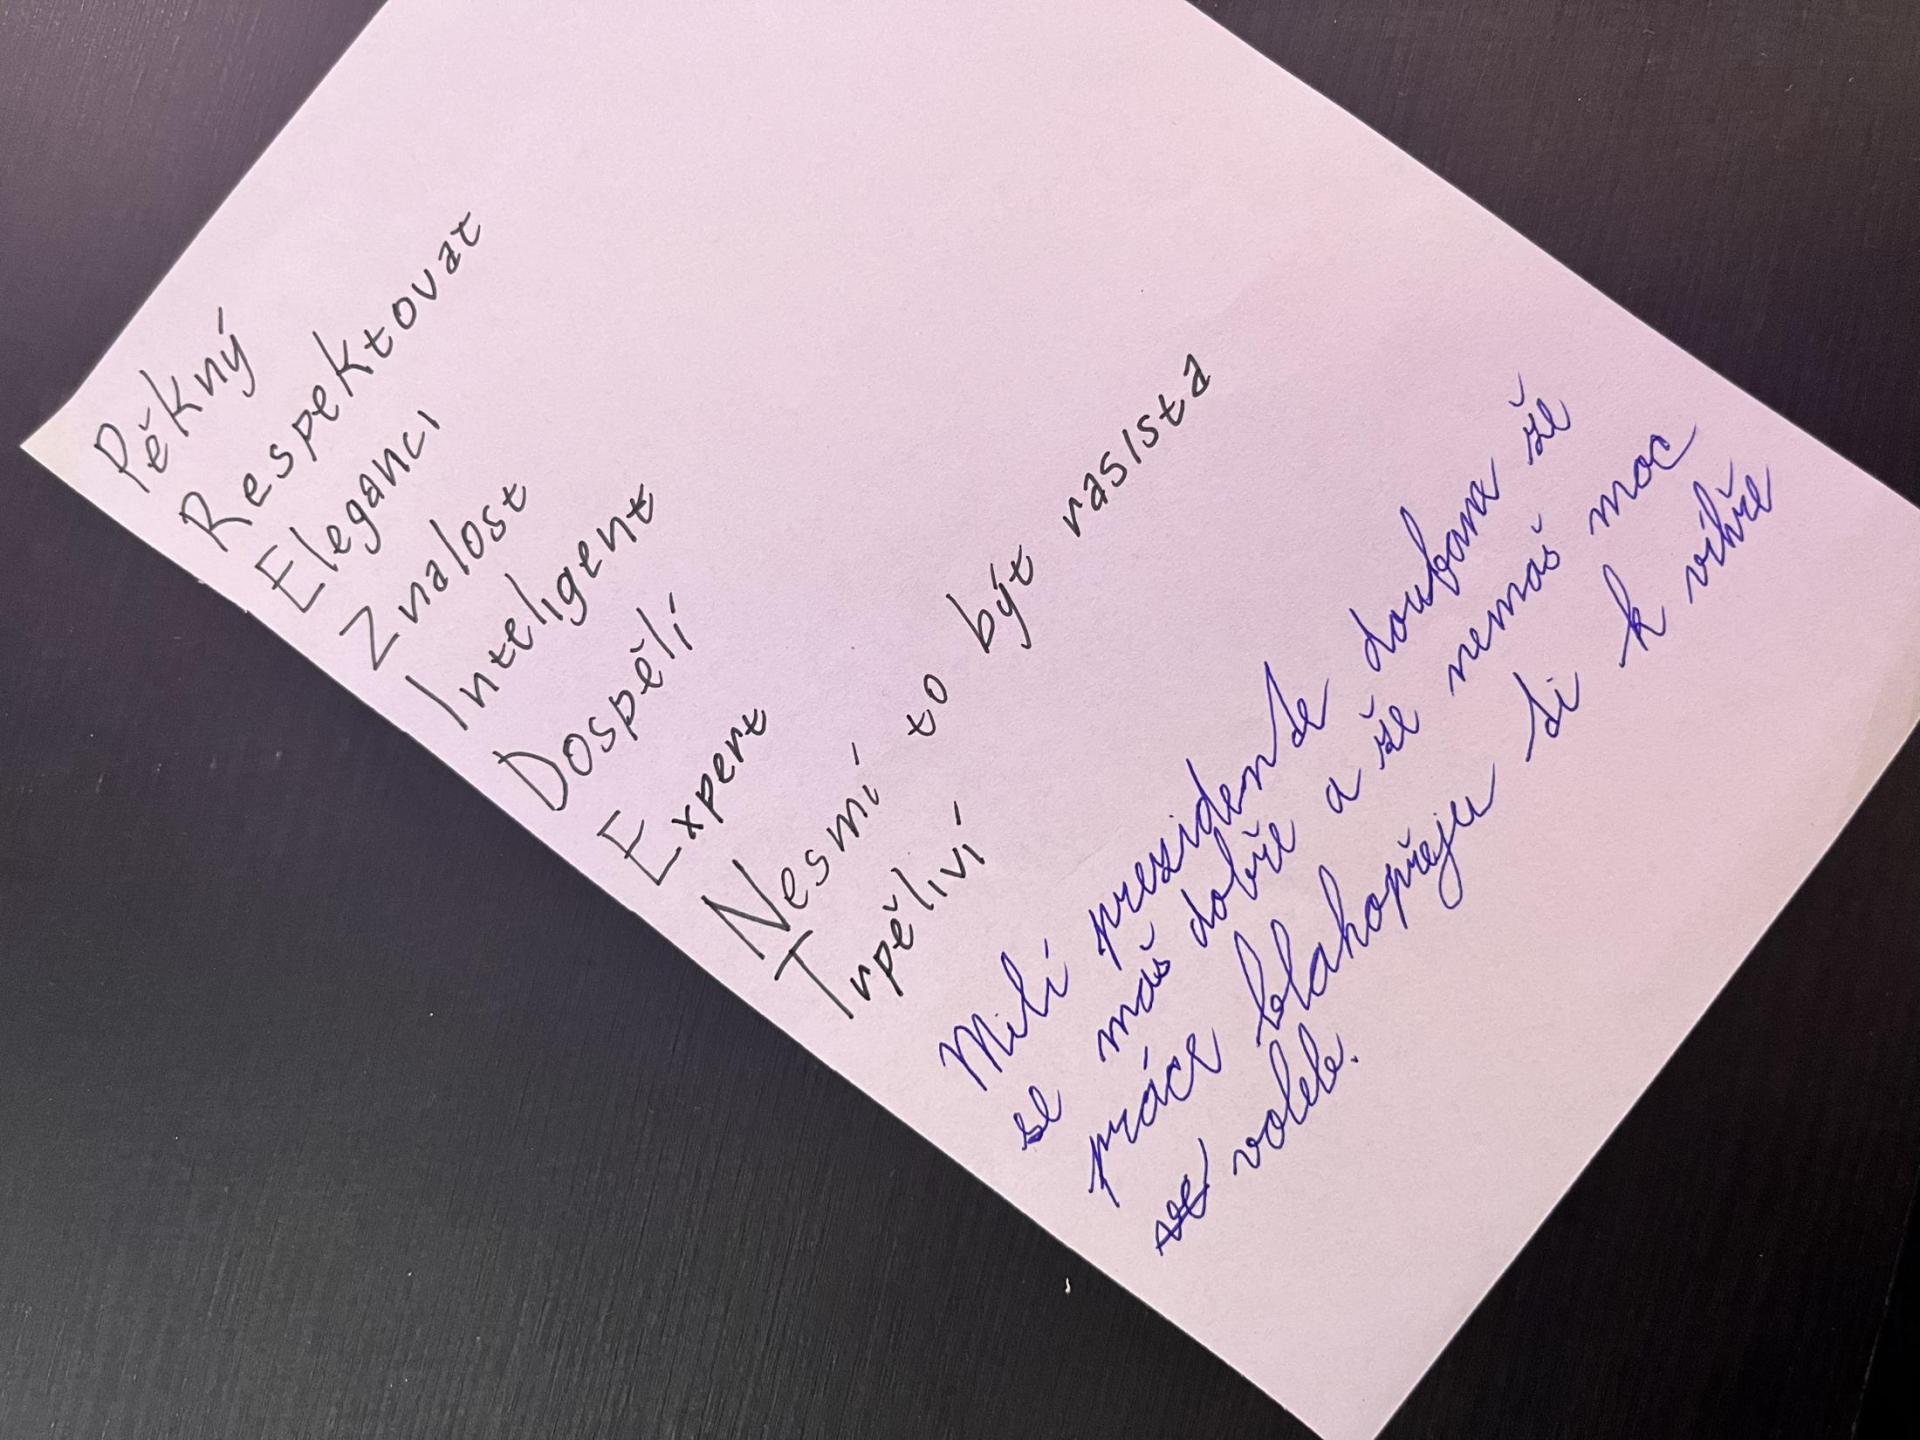 Pěkný
Respektovat
Eleganci
Znalost
Inteligent
Dospělí
Expert
Nesmí to být rasista
Trpěliví
Milí prezidente doufama že
se máš dobře a že nemáš moc
práce blahopřeju si k vihře
volele.